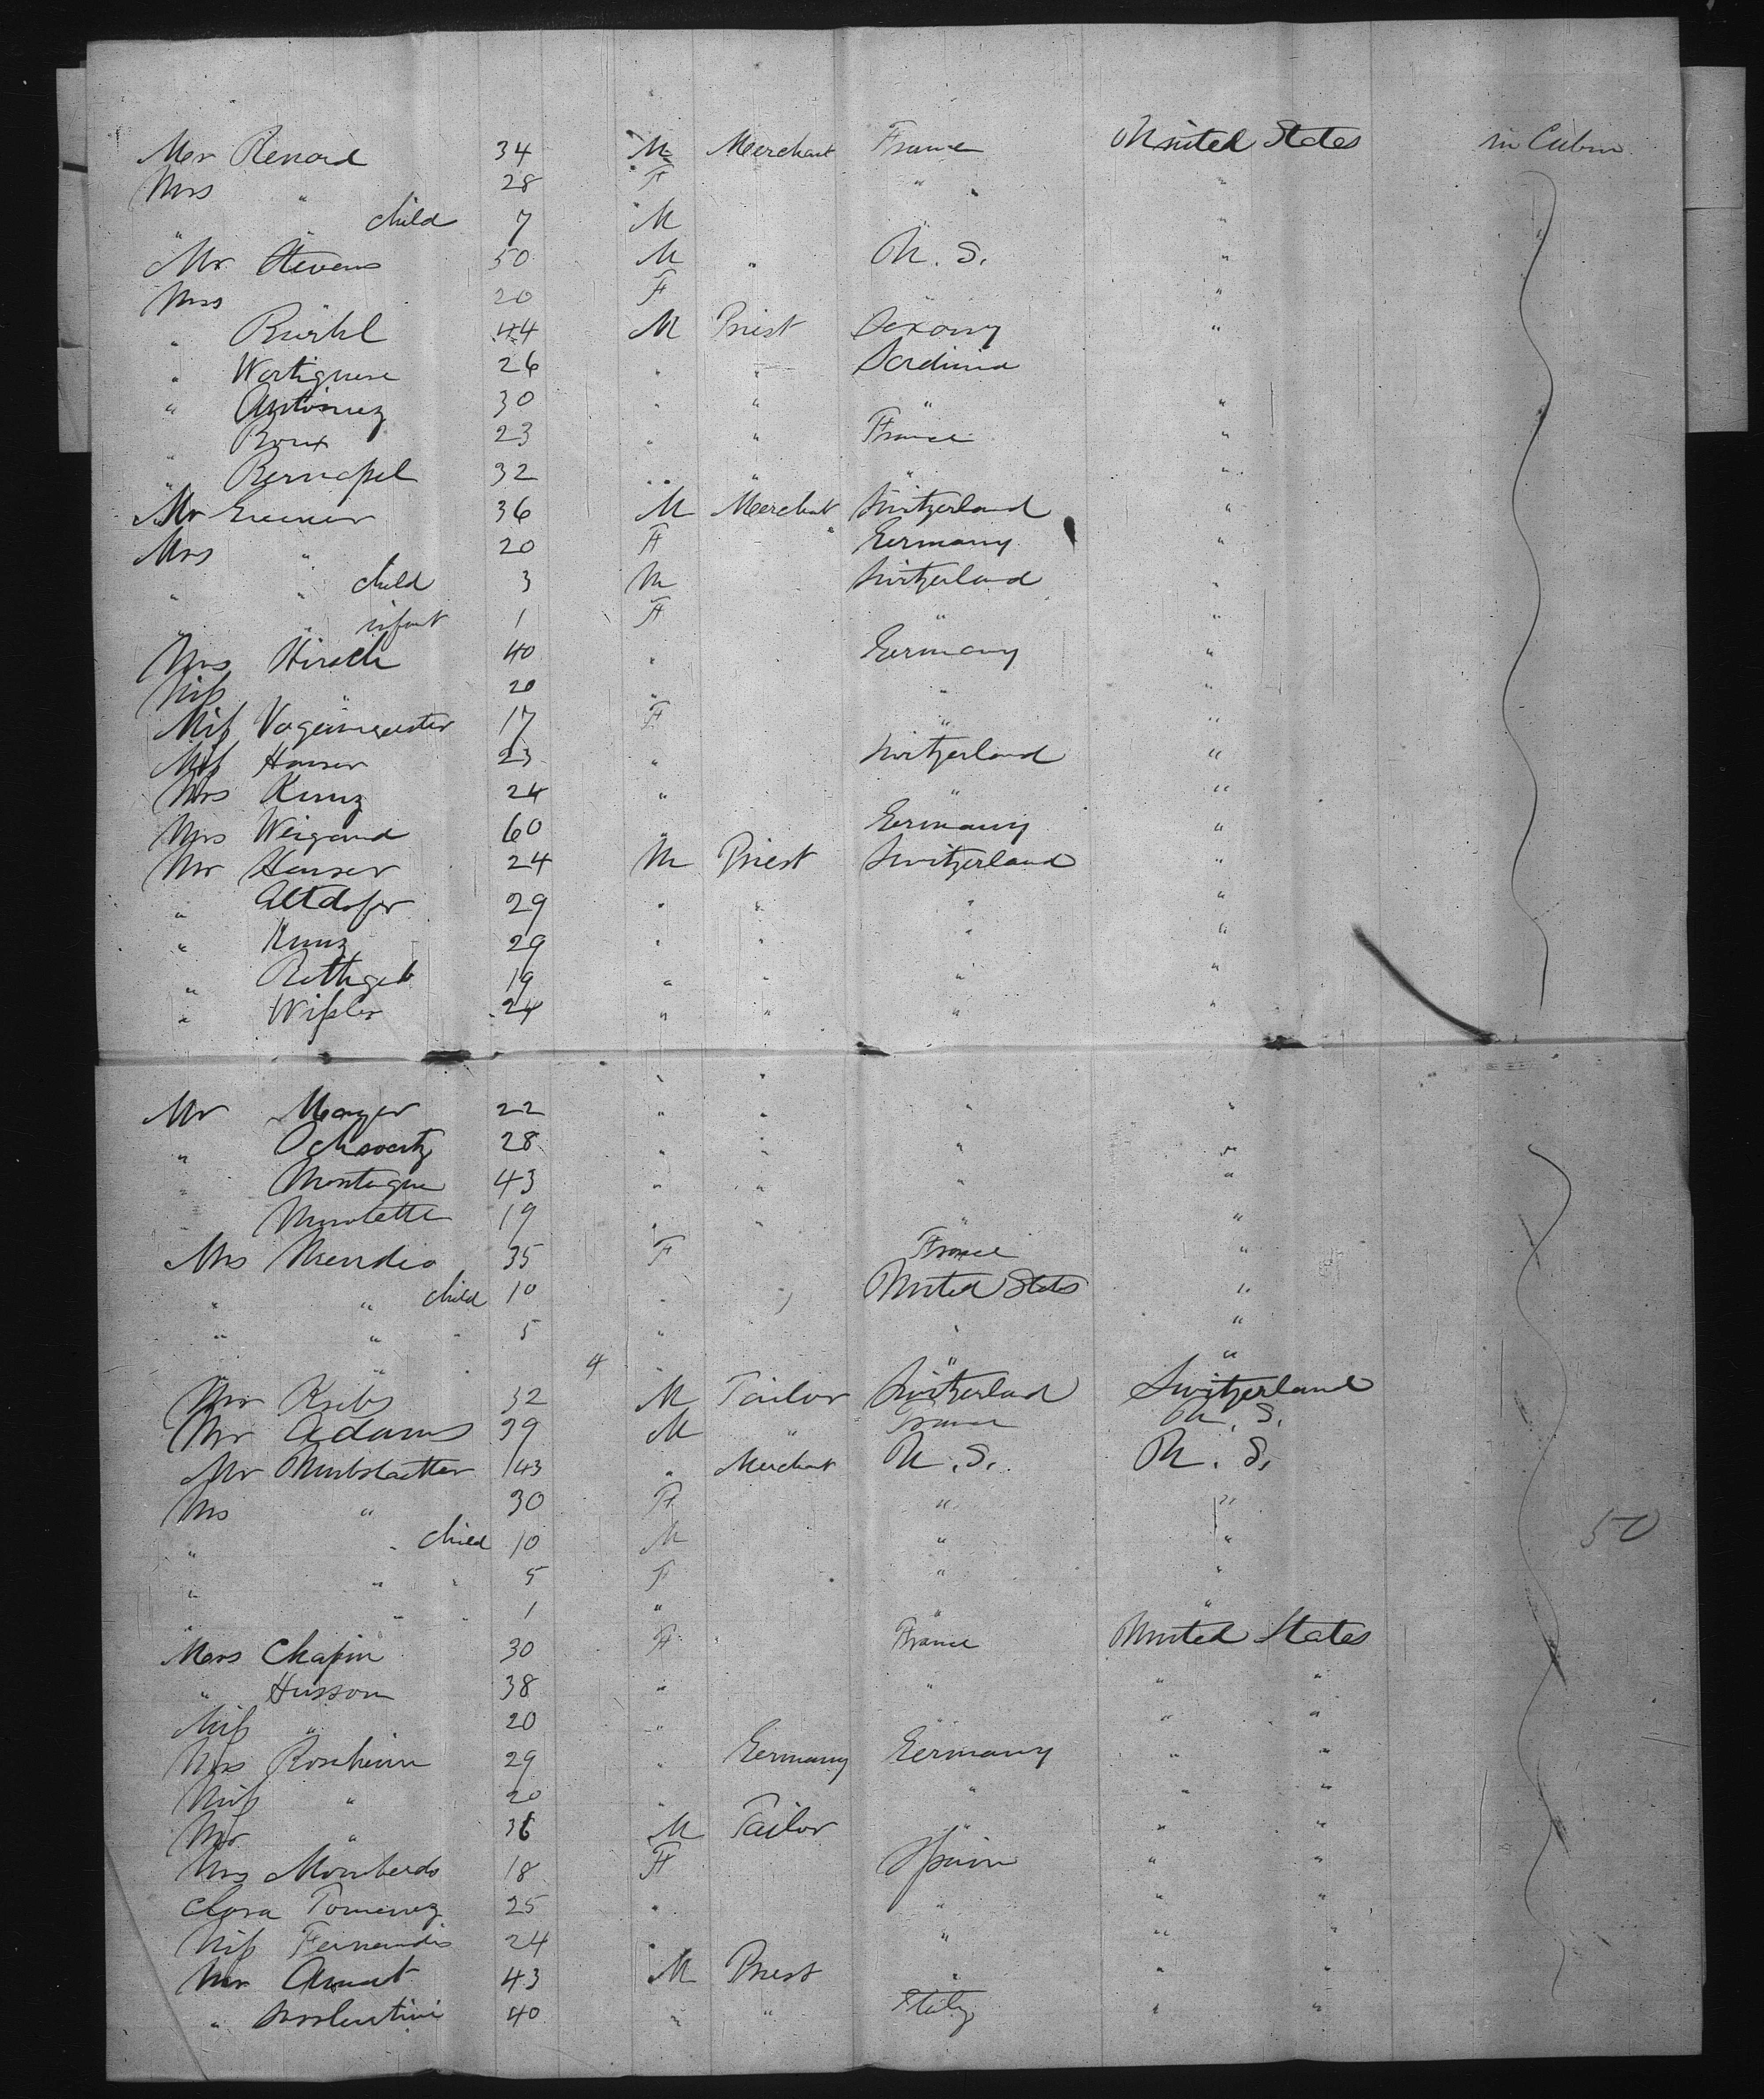 Mr Renard 34 M Merchant France United States in Cabin
Mrs " 28 F " " "
" " child 7 M " "
Mr Stevens 50 M " U. S. "
Mrs " 20 F "
" 44 M Priest Saxony "
" 26 " " Sardinia
" Antoinez 30 " " " "
" Roux 23 " " France "
" 32 " " " "
Mr 36 M Merchant Switzerland "
Mrs " 20 F " Germany "
" " child 3 M Switzerland "
" " infant 1 F " "
Mrs Hirsch 40 " Germany "
Miss " 20 " " "
Miss 17 F " "
Miss Hauser 23 " Switzerland "
Mrs Kunz 24 " " "
Mrs Weigand 60 " Germany "
Mr Hauser 24 M Priest Switzerland "
" Altdofer 29 " " " "
" Kunz 29 " " " "
" Rethgeb 19 " " " "
" Wissler 24 " " " "
Mr Mayer 22 " " " "
" Schwartz 28 " " " "
" Montague 43 " " " "
" 19 " " " "
Mrs 35 F France "
" " child 10 " " United States "
" " " 5 " " "
" 4 " " "
Mr Krebs 32 M Tailor Switzerland Switzerland
Mr Adams 39 M " France U. S.
Mr 43 " Merchant U. S. U. S.
Mrs " 30 F " "
" " child 10 M " "
" " " 5 F " " 50
" " " 1 " " "
Mrs Chapin 30 F France United States
" Husson 38 " " " "
Miss " 20 " " " "
Mrs Rosheim 29 " Germany Germany " "
Miss " 20 " " " "
Mr " 36 M Tailor " " "
Mrs 18 F Spain " "
Clara 25 " " " "
Miss Fernandis 24 " " " "
Mr 43 M Priest " " "
" 40 " " Italy " "